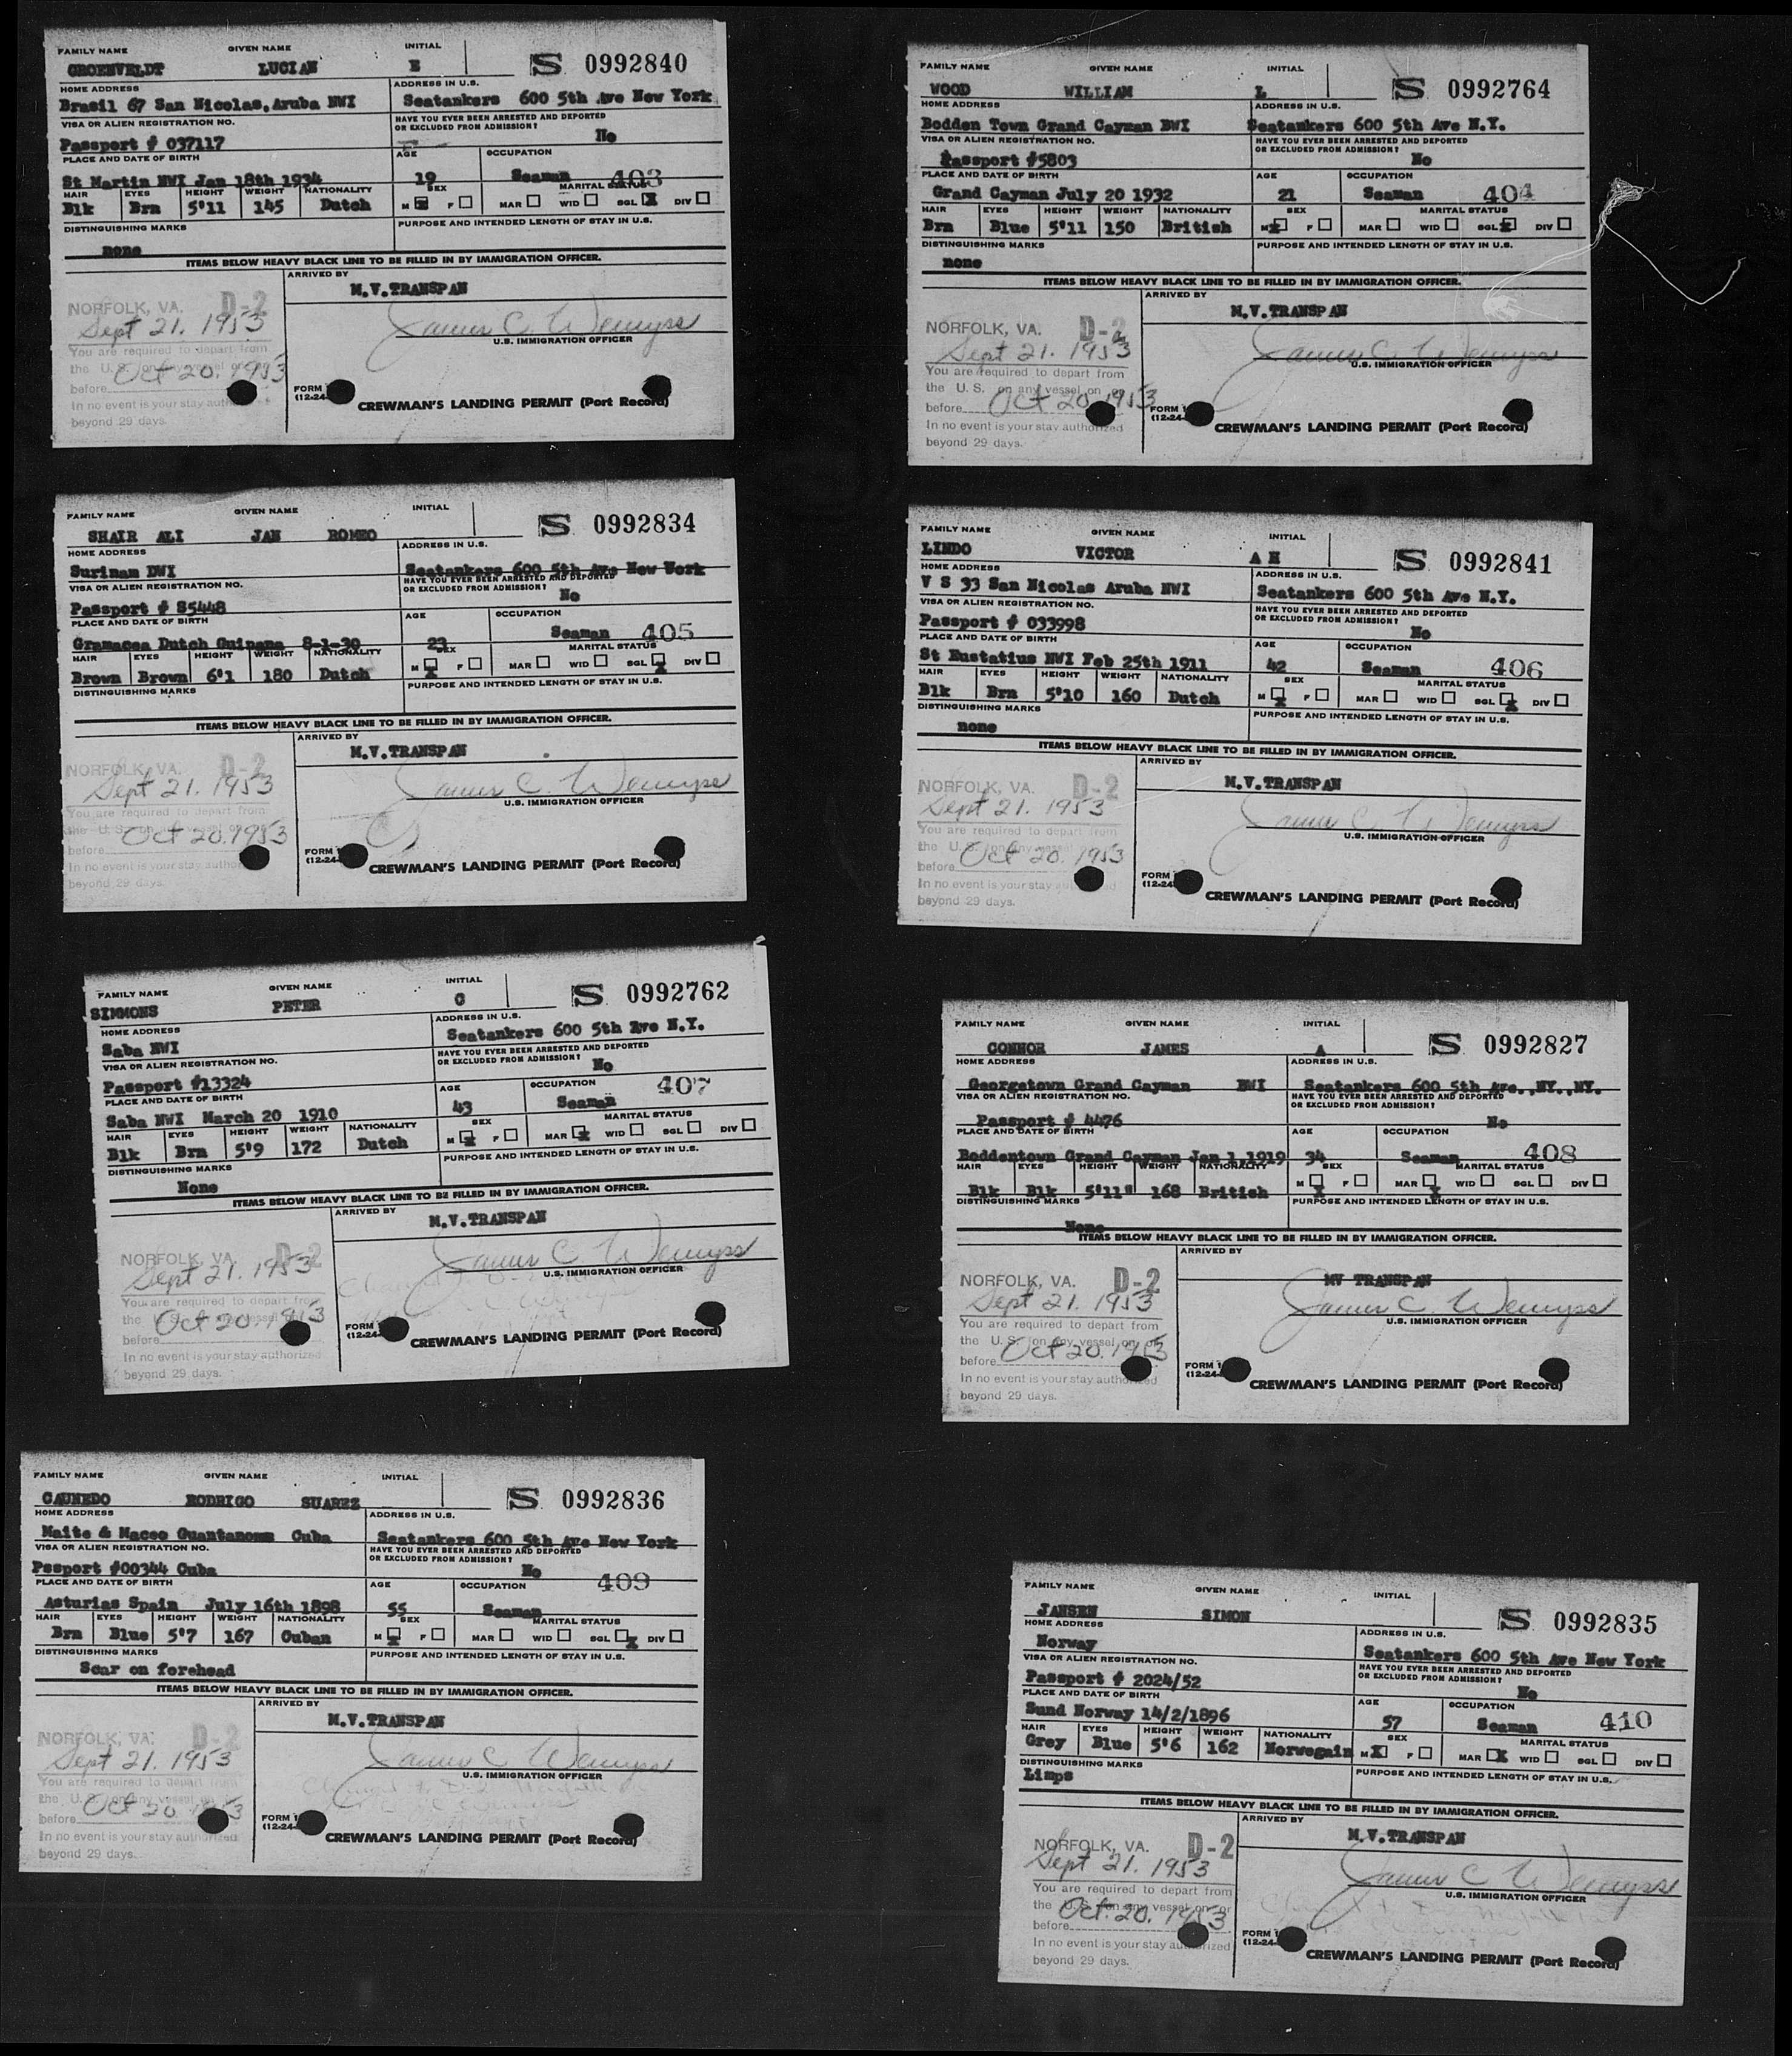 FAMILY NAME GIVEN NAME INITIAL
GROENVELDT LUCIAN E S 0992840
HOME ADDRESS ADDRESS IN U.S.
Brasil 67 San Nicolas, Aruba NWI Seatankers 600 5th Ave New York
VISA OR ALIEN REGISTRATION NO. HAVE YOU EVER BEEN ARRESTED AND DEPORTED OR EXCLUDED FROM ADMISSION?
Passport # 037117 No
PLACE AND DATE OF BIRTH AGE OCCUPATION
St Martin NWI Jan 18th 1934 19 Seaman 403
HAIR EYES HEIGHT WEIGHT NATIONALITY SEX MARITAL STATUS
Blk Brn 5'11 145 Dutch M X F MAR WID SGL X DIV
DISTINGUISHING MARKS PURPOSE AND INTENDED LENGTH OF STAY IN U.S.
none
ITEMS BELOW HEAVY BLACK LINE TO BE FILLED IN BY IMMIGRATION OFFICER.
ARRIVED BY
M.V.TRANSPAN
NORFOLK, VA. D-2
Sept 21. 1953 James C. Wemyss
U.S. IMMIGRATION OFFICER
You are required to depart from
the U. S. on any vessel on or
before Oct 20. 1953
In no event is your stay auth
beyond 29 days.
FORM
(12-24-
CREWMAN'S LANDING PERMIT (Port Record)
FAMILY NAME GIVEN NAME INITIAL
WOOD WILLIAM L S 0992764
HOME ADDRESS ADDRESS IN U.S.
Bodden Town Grand Cayman BWI Seatankers 600 5th Ave N.Y.
VISA OR ALIEN REGISTRATION NO. HAVE YOU EVER BEEN ARRESTED AND DEPORTED OR EXCLUDED FROM ADMISSION?
Passport #5803 No
PLACE AND DATE OF BIRTH AGE OCCUPATION
Grand Cayman July 20 1932 21 Seaman 404
HAIR EYES HEIGHT WEIGHT NATIONALITY SEX MARITAL STATUS
Brn Blue 5'11 150 British M X F MAR WID SGL X DIV
DISTINGUISHING MARKS PURPOSE AND INTENDED LENGTH OF STAY IN U.S.
none
ITEMS BELOW HEAVY BLACK LINE TO BE FILLED IN BY IMMIGRATION OFFICER.
ARRIVED BY
M.V.TRANSPAN
NORFOLK, VA. D-2
Sept 21. 1953 James C. Wemyss
U.S. IMMIGRATION OFFICER
You are required to depart from
the U. S. on any vessel on or
before Oct 20 1953
In no event is your stay authorized
beyond 29 days.
FORM
(12-24-
CREWMAN'S LANDING PERMIT (Port Record)
FAMILY NAME GIVEN NAME INITIAL
SHAIR ALI JAN ROMEO S 0992834
HOME ADDRESS ADDRESS IN U.S.
Surinam DWI Seatankers 600 5th Ave New York
VISA OR ALIEN REGISTRATION NO. HAVE YOU EVER BEEN ARRESTED AND DEPORTED OR EXCLUDED FROM ADMISSION?
Passport # S5448 No
PLACE AND DATE OF BIRTH AGE OCCUPATION
Gramacea Dutch Guinana 8-1-30 23 Seaman 405
HAIR EYES HEIGHT WEIGHT NATIONALITY SEX MARITAL STATUS
Brown Brown 6'1 180 Dutch M X F MAR WID SGL X DIV
DISTINGUISHING MARKS PURPOSE AND INTENDED LENGTH OF STAY IN U.S.
ITEMS BELOW HEAVY BLACK LINE TO BE FILLED IN BY IMMIGRATION OFFICER.
ARRIVED BY
M.V.TRANSPAN
NORFOLK, VA. D-2
Sept 21. 1953 James C. Wemyss
U.S. IMMIGRATION OFFICER
You are required to depart from
the U. S. on any vessel on or
before Oct 20. 1953
In no event is your stay autho
beyond 29 days.
FORM
(12-24-
CREWMAN'S LANDING PERMIT (Port Record)
FAMILY NAME GIVEN NAME INITIAL
LINDO VICTOR A H S 0992841
HOME ADDRESS ADDRESS IN U.S.
V S 33 San Nicolas Aruba NWI Seatankers 600 5th Ave N.Y.
VISA OR ALIEN REGISTRATION NO. HAVE YOU EVER BEEN ARRESTED AND DEPORTED OR EXCLUDED FROM ADMISSION?
Passport # 033998 No
PLACE AND DATE OF BIRTH AGE OCCUPATION
St Eustatius NWI Feb 25th 1911 42 Seaman 406
HAIR EYES HEIGHT WEIGHT NATIONALITY SEX MARITAL STATUS
Blk Brn 5'10 160 Dutch M X F MAR WID SGL X DIV
DISTINGUISHING MARKS PURPOSE AND INTENDED LENGTH OF STAY IN U.S.
none
ITEMS BELOW HEAVY BLACK LINE TO BE FILLED IN BY IMMIGRATION OFFICER.
ARRIVED BY
M.V.TRANSPAN
NORFOLK, VA. D-2
Sept 21. 1953 James C. Wemyss
U.S. IMMIGRATION OFFICER
You are required to depart from
the U. S. on any vessel
before Oct 20. 1953
In no event is your stay
beyond 29 days.
FORM
(12-24-
CREWMAN'S LANDING PERMIT (Port Record)
FAMILY NAME GIVEN NAME INITIAL
SIMMONS PETER C S 0992762
HOME ADDRESS ADDRESS IN U.S.
Saba NWI Seatankers 600 5th Ave N.Y.
VISA OR ALIEN REGISTRATION NO. HAVE YOU EVER BEEN ARRESTED AND DEPORTED OR EXCLUDED FROM ADMISSION?
Passport #13324 No
PLACE AND DATE OF BIRTH AGE OCCUPATION
Saba NWI March 20 1910 43 Seaman 407
HAIR EYES HEIGHT WEIGHT NATIONALITY SEX MARITAL STATUS
Blk Brn 5'9 172 Dutch M X F MAR X WID SGL DIV
DISTINGUISHING MARKS PURPOSE AND INTENDED LENGTH OF STAY IN U.S.
None
ITEMS BELOW HEAVY BLACK LINE TO BE FILLED IN BY IMMIGRATION OFFICER.
ARRIVED BY
M.V.TRANSPAN
NORFOLK, VA. D-2
Sept 21. 1953 James C. Wemyss
U.S. IMMIGRATION OFFICER
You are required to depart from
the vessel
before Oct 20. 1953
In no event is your stay authorized
beyond 29 days.
FORM
(12-24-
CREWMAN'S LANDING PERMIT (Port Record)
FAMILY NAME GIVEN NAME INITIAL
CONNOR JAMES A S 0992827
HOME ADDRESS ADDRESS IN U.S.
Georgetown Grand Cayman BWI Seatankers 600 5th Ave., NY., NY.
VISA OR ALIEN REGISTRATION NO. HAVE YOU EVER BEEN ARRESTED AND DEPORTED OR EXCLUDED FROM ADMISSION?
Passport # 4476 No
PLACE AND DATE OF BIRTH AGE OCCUPATION
Boddentown Grand Cayman Jan 1 1919 34 Seaman 408
HAIR EYES HEIGHT WEIGHT NATIONALITY SEX MARITAL STATUS
Blk Blk 5'11" 168 British M X F MAR X WID SGL DIV
DISTINGUISHING MARKS PURPOSE AND INTENDED LENGTH OF STAY IN U.S.
None
ITEMS BELOW HEAVY BLACK LINE TO BE FILLED IN BY IMMIGRATION OFFICER.
ARRIVED BY
MV TRANSPAN
NORFOLK, VA. D-2
Sept 21. 1953 James C. Wemyss
U.S. IMMIGRATION OFFICER
You are required to depart from
the U. S. on any vessel on or
before Oct 20. 1953
In no event is your stay authorized
beyond 29 days.
FORM
(12-24-
CREWMAN'S LANDING PERMIT (Port Record)
FAMILY NAME GIVEN NAME INITIAL
CAUNEDO RODRIGO SUAREZ S 0992836
HOME ADDRESS ADDRESS IN U.S.
Maite & Maceo Guantanomm Cuba Seatankers 600 5th Ave New York
VISA OR ALIEN REGISTRATION NO. HAVE YOU EVER BEEN ARRESTED AND DEPORTED OR EXCLUDED FROM ADMISSION?
Pssport #00344 Cuba No 409
PLACE AND DATE OF BIRTH AGE OCCUPATION
Asturias Spain July 16th 1898 55 Seaman
HAIR EYES HEIGHT WEIGHT NATIONALITY SEX MARITAL STATUS
Brn Blue 5'7 167 Cuban M X F MAR WID SGL X DIV
DISTINGUISHING MARKS PURPOSE AND INTENDED LENGTH OF STAY IN U.S.
Scar on forehead
ITEMS BELOW HEAVY BLACK LINE TO BE FILLED IN BY IMMIGRATION OFFICER.
ARRIVED BY
M.V.TRANSPAN
NORFOLK, VA. D-2
Sept 21. 1953 James C Wemyss
U.S. IMMIGRATION OFFICER
You are required to depart from
the U. S. on any vessel on
before Oct 20 1953
In no event is your stay authorized
beyond 29 days.
FORM
(12-24-
CREWMAN'S LANDING PERMIT (Port Record)
FAMILY NAME GIVEN NAME INITIAL
JANSEN SIMON S 0992835
HOME ADDRESS ADDRESS IN U.S.
Norway Seatankers 600 5th Ave New York
VISA OR ALIEN REGISTRATION NO. HAVE YOU EVER BEEN ARRESTED AND DEPORTED OR EXCLUDED FROM ADMISSION?
Passport # 2024/52 No
PLACE AND DATE OF BIRTH AGE OCCUPATION
Sund Norway 14/2/1896 57 Seaman 410
HAIR EYES HEIGHT WEIGHT NATIONALITY SEX MARITAL STATUS
Grey Blue 5'6 162 Norwegain M X F MAR X WID SGL DIV
DISTINGUISHING MARKS PURPOSE AND INTENDED LENGTH OF STAY IN U.S.
Limps
ITEMS BELOW HEAVY BLACK LINE TO BE FILLED IN BY IMMIGRATION OFFICER.
ARRIVED BY
M.V.TRANSPAN
NORFOLK, VA. D-2
Sept 21. 1953 James C Wemyss
U.S. IMMIGRATION OFFICER
You are required to depart from
the U.S. on any vessel on or
before Oct. 20. 1953
In no event is your stay authorized
beyond 29 days.
FORM
(12-24-
CREWMAN'S LANDING PERMIT (Port Record)